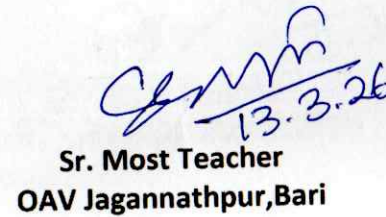 13.3.26
Sr. Most Teacher
OAV Jagannathpur,Bari